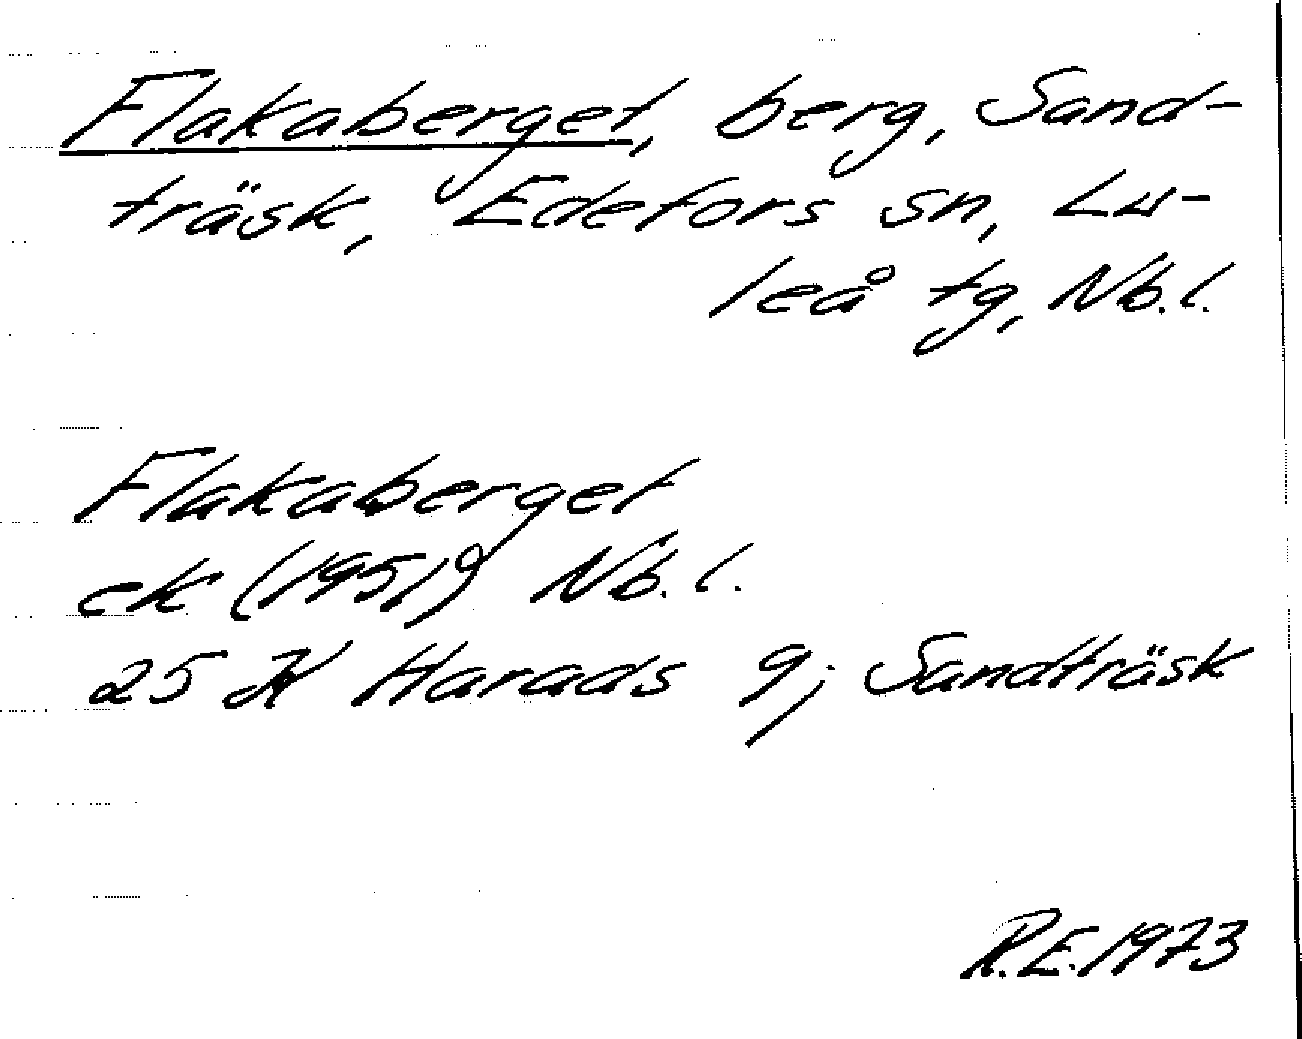 Flakaberget, berg, Sand-
träsk, Edefors sn, Lu-
leå tg, Nb.l.
Flakaberget
ek (1951) Nb.l.
25 K Harads 9j Sandträsk
R.E. 1973